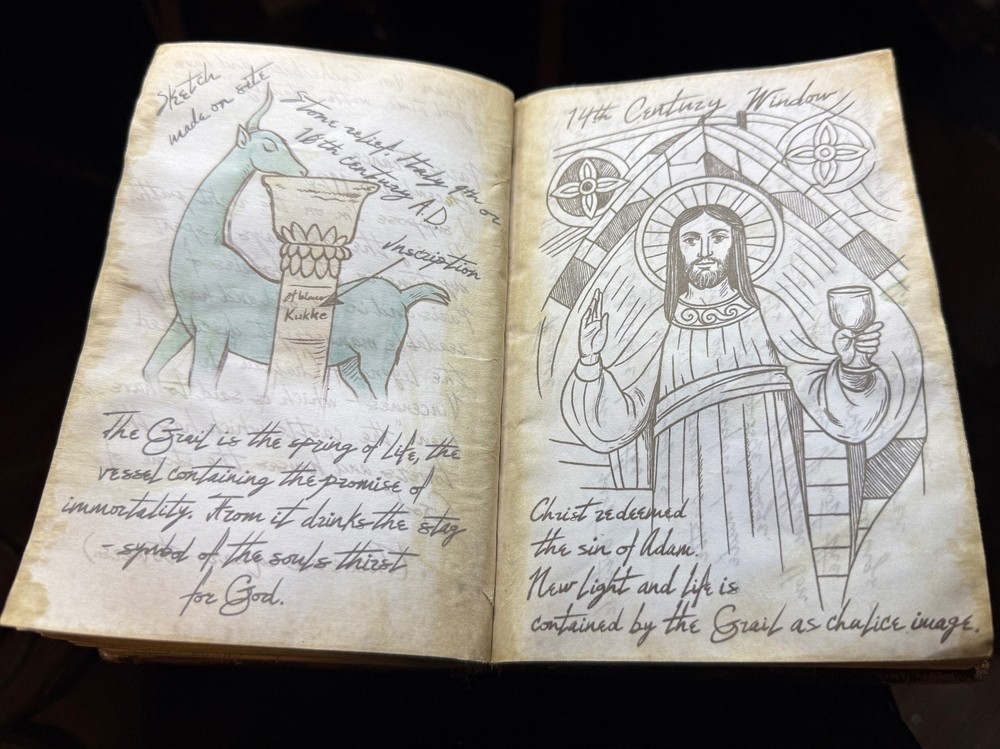 Sketch
made on site
Stone relief Italy 9th or
10th century A.D.
Inscription
Kukke
The Grail is the spring of life, the
vessel containing the promise of
immortality. From it drinks the stag
- symbol of the souls thirst
for God.
14th Century Window
Christ redeemed
the sin of Adam.
New light and life is
contained by the Grail as chalice image.